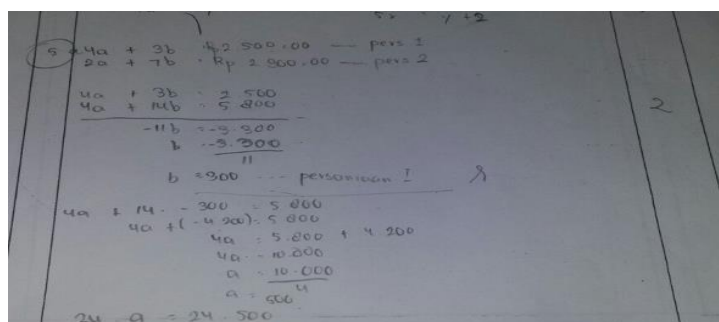 5x = y + 2
5 4a + 3b = Rp 2.500,00 — pers 1
2a + 7b = Rp 2.900,00 — pers 2
4a + 3b = 2.500
4a + 14b = 5.800
-11b = -3.300
b = -3.300
11
b = 300 ... persamaan I
2
4a + 14 . - 300 = 5.800
4a + (-4.200) = 5.800
4a = 5.800 + 4.200
4a = 10.000
a = 10.000
4
a = 500
24 a = 24.500